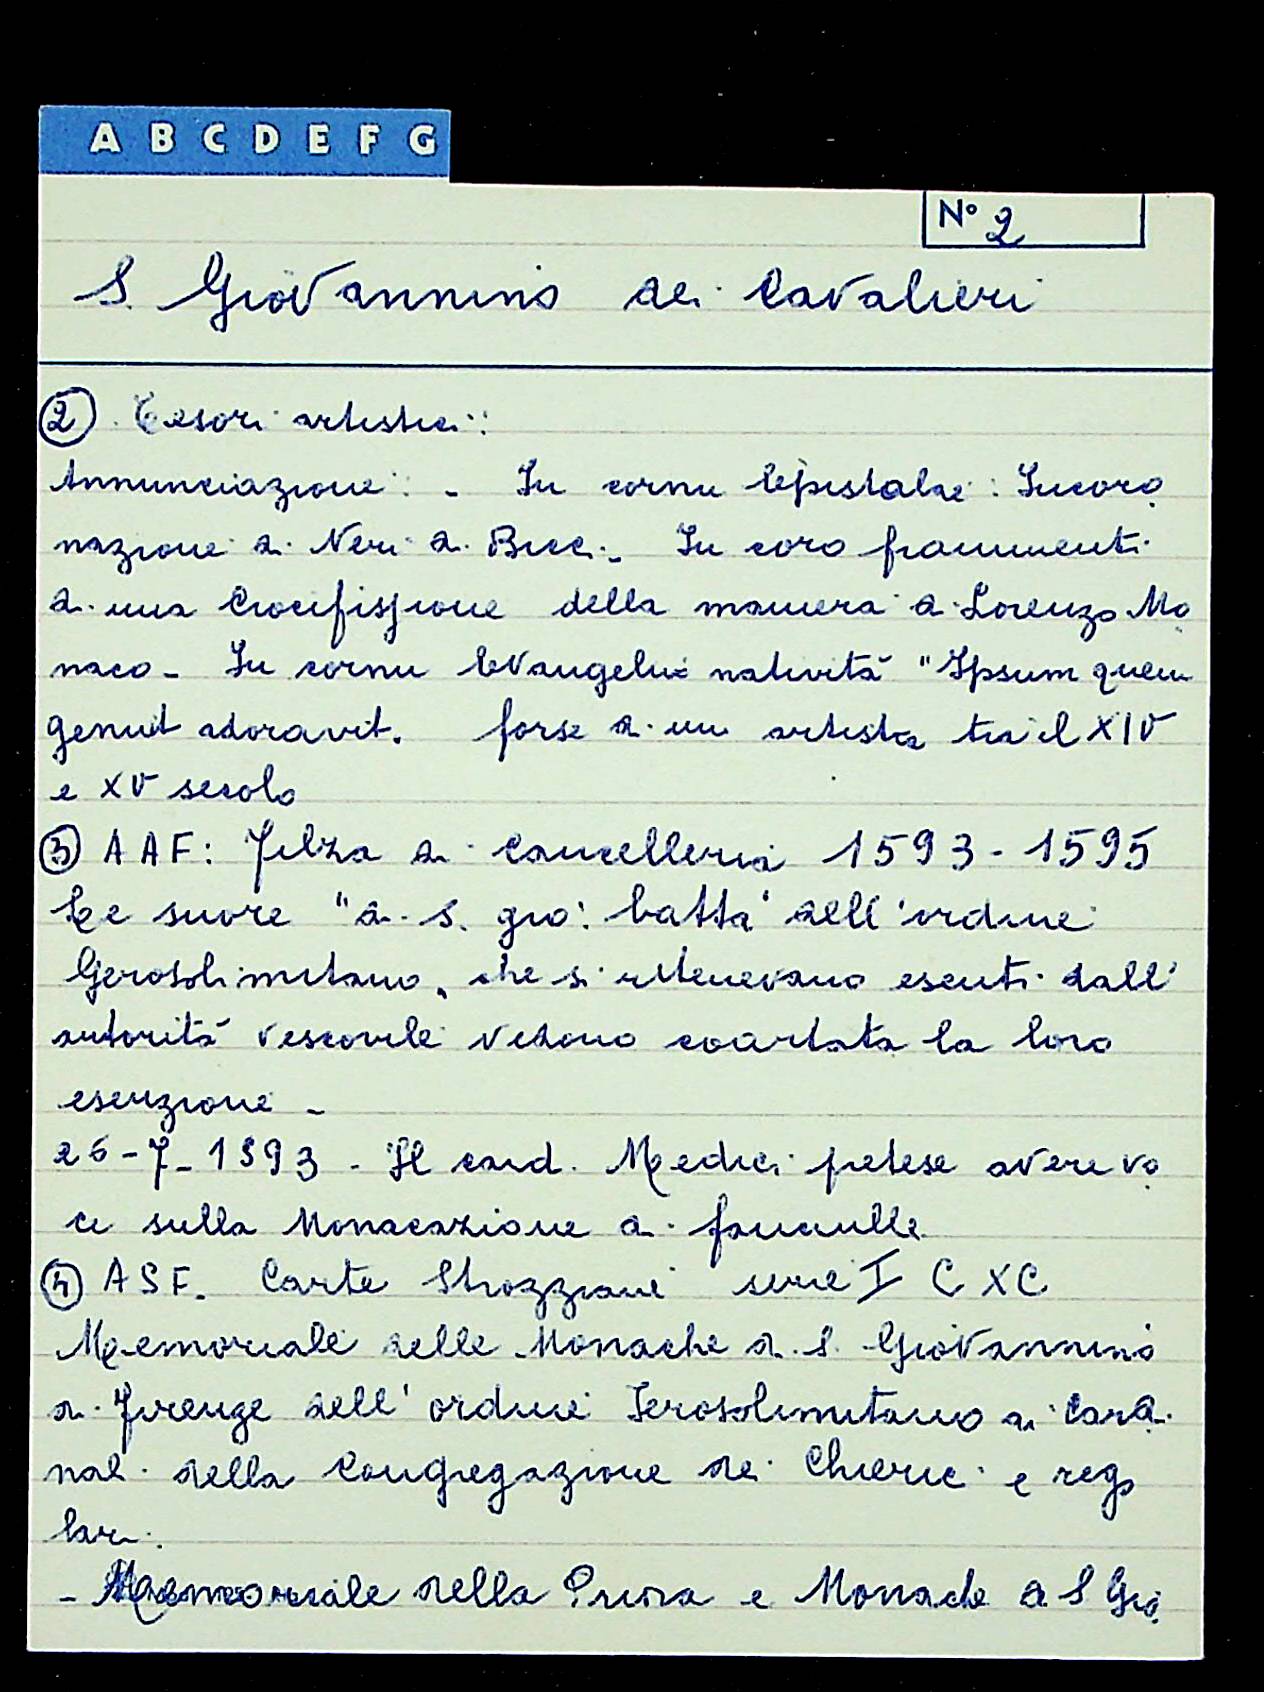 A B C D E F G
N° 2
S. Giovannino dei Cavalieri
② Tesori artistici:
Annunciazione. - In cornu Epistolae: Incoro
nazione di Neri di Bicci. - In coro frammenti
di una Crocifissione della maniera di Lorenzo Mo
naco - In cornu Evangelii natività "Ipsum quem
genuit adoravit. forse di un artista tra il XIV
e XV secolo
③ AAF: Filza di Cancelleria 1593-1595
Le suore "di S. Gio: batta" dell'ordine
Gerosolimitano, che si ritenevano esenti dall'
autorità vescovile vedono coartata la loro
esenzione -
26-7-1593 - Il card. Medici pretese avere vo
ce sulla Monacazione di fanciulle
④ ASF. Carte Strozziane serie I CXC
Memoriale delle Monache di S. Giovannino
di Firenze dell'ordine Ierosolimitano ai Cardi
nali della Congregazione dei Chierici e rego
lari.
- Memoriale della Priora e Monache di S Gio